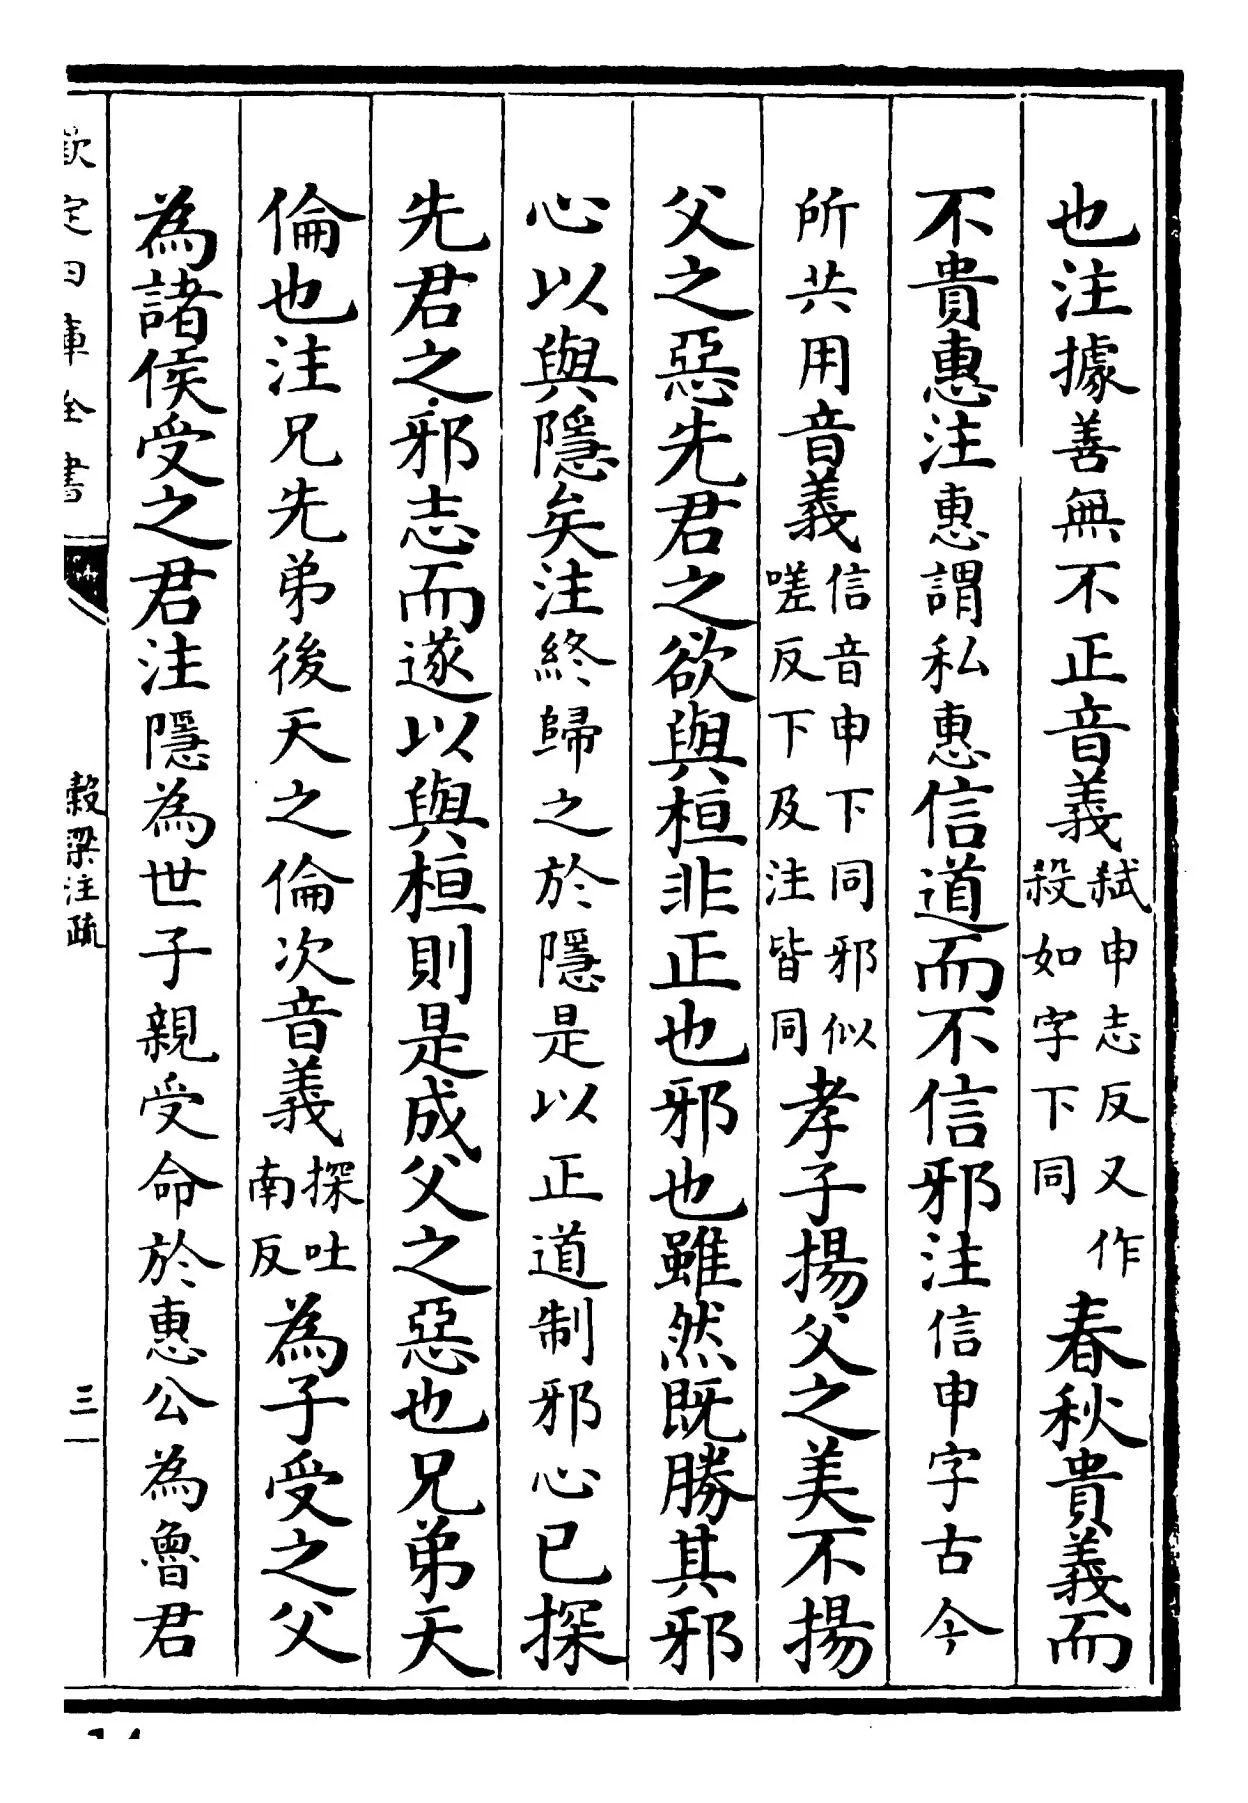 也注據善無不正音義弑申志反又作殺如字下同春秋貴義而
不貴惠注惠謂私惠信道而不信邪注信申字古今
所共用音義信音申下同邪似嗟反下及注皆同孝子揚父之美不揚
父之惡先君之欲與桓非正也邪也雖然既勝其邪
心以與隱矣注終歸之於隱是以正道制邪心已探
先君之邪志而遂以與桓則是成父之惡也兄弟天
倫也注兄先弟後天之倫次音義探吐南反為子受之父
為諸侯受之君注隱為世子親受命於惠公為魯君
欽定四庫全書
穀梁注疏
三